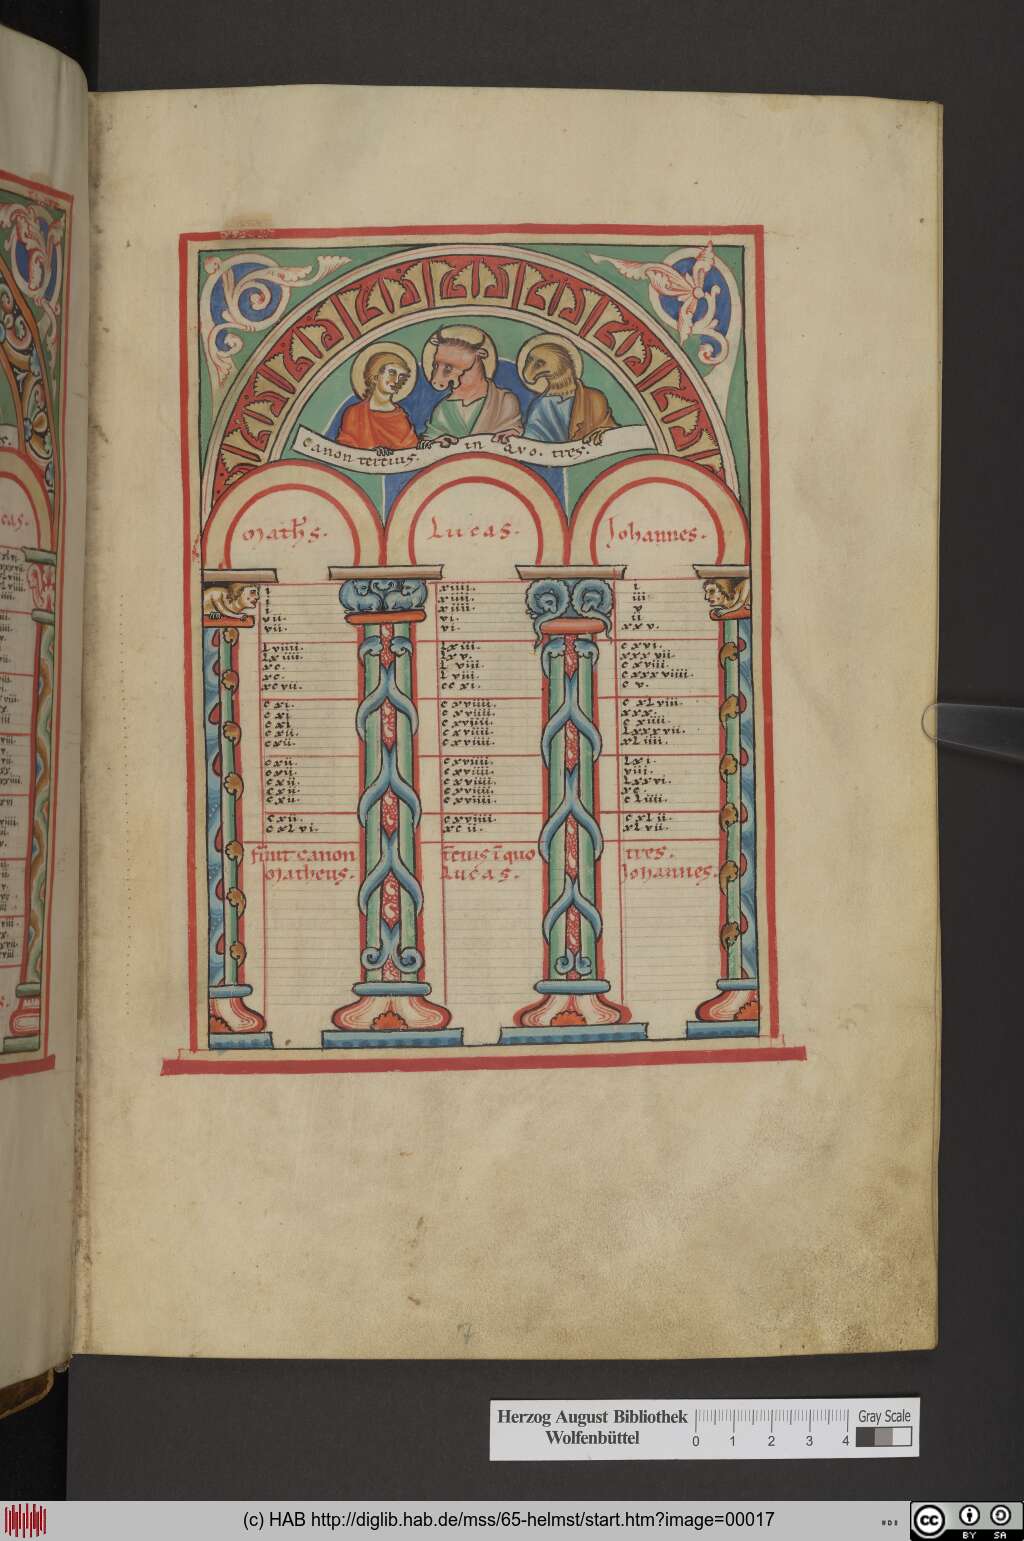 canon tertius. in quo. tres.
Math's. Lucas. Johannes.
i xiiii. i
i xiiii. iii.
i xiiii. v
vii. vi. ii
vii. vi. xxv.
lviiii. lxiii. cxvi.
lxiiii. lxv. xxxvii.
xc. lviii. cxviii.
xc. lviii. cxxxviiii.
xcvii. ccxi. cv.
cxi. cxviiii. cxlviii.
cxi. cxviiii. xxx.
cxi. cxviiii. cxiiii.
cxii. cxviiii. lxxxvii.
cxii. cxviiii. xliiii.
cxii. cxviiii. lxi.
cxii. cxviiii. viii.
cxii. cxviiii. lxxvi.
cxii. cxviiii. xc.
cxii. cxviiii. cliiii.
cxii. cxviiii. cxlii.
cxlvi. xcii. xlvii.
finit canon t̄cius ī quo tres.
Matheus. Lucas. Johannes.
7
Herzog August Bibliothek
Wolfenbüttel
0 1 2 3 4
Gray Scale
(c) HAB http://diglib.hab.de/mss/65-helmst/start.htm?image=00017
cc BY SA